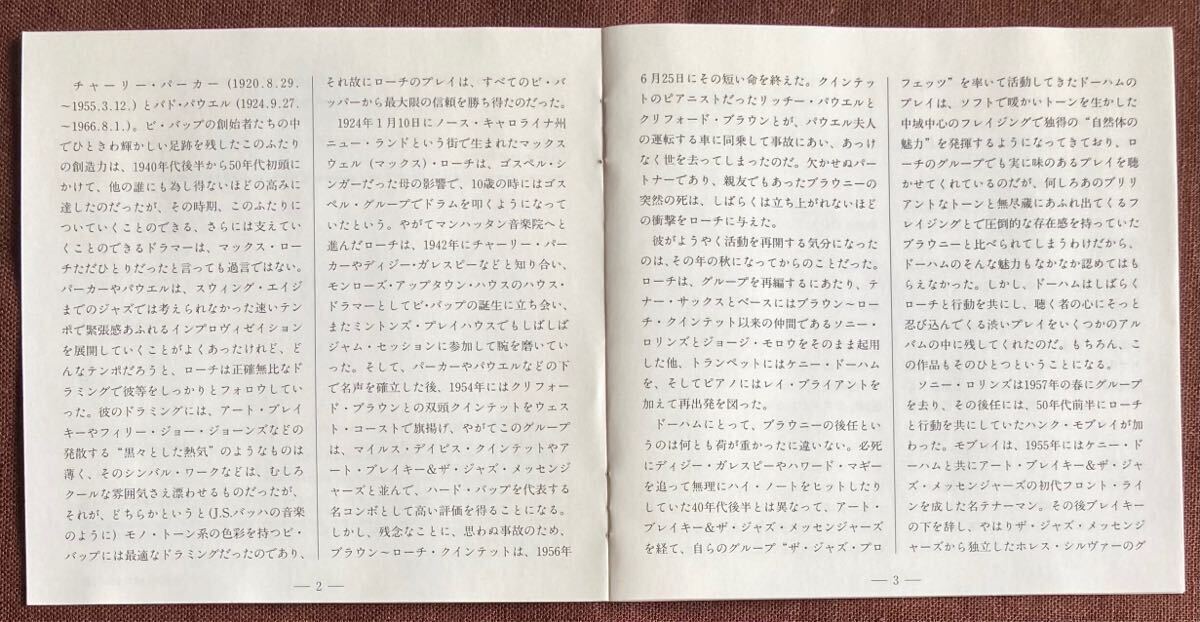 チャーリー・パーカー (1920.8.29.
〜1955.3.12.) とバド・パウエル (1924.9.27.
〜1966.8.1.)。ビ・バップの創始者たちの中
でひときわ輝かしい足跡を残したこのふたり
の創造力は、1940年代後半から50年代初頭に
かけて、他の誰にも為し得ないほどの高みに
達したのだったが、その時期、このふたりに
ついていくことのできる、さらには支えてい
くことのできるドラマーは、マックス・ロー
チただひとりだったと言っても過言ではない。
パーカーやパウエルは、スウィング・エイジ
までのジャズでは考えられなかった速いテン
ポで緊張感あふれるインプロヴィゼイション
を展開していくことがよくあったけれど、ど
んなテンポだろうと、ローチは正確無比なド
ラミングで彼等をしっかりとフォロウしてい
った。彼のドラミングには、アート・ブレイ
キーやフィリー・ジョー・ジョーンズなどの
発散する“黒々とした熱気”のようなものは
薄く、そのシンバル・ワークなどは、むしろ
クールな雰囲気さえ漂わせるものだったが、
それが、どちらかというと (J.S.バッハの音楽
のように) モノ・トーン系の色彩を持つビ・
バップには最適なドラミングだったのであり、
それ故にローチのプレイは、すべてのビ・バ
ッパーから最大限の信頼を勝ち得たのだった。
1924年1月10日にノース・キャロライナ州
ニュー・ランドという街で生まれたマックス
ウェル (マックス)・ローチは、ゴスペル・シ
ンガーだった母の影響で、10歳の時にはゴス
ペル・グループでドラムを叩くようになって
いたという。やがてマンハッタン音楽院へと
進んだローチは、1942年にチャーリー・パー
カーやディジー・ガレスピーなどと知り合い、
モンローズ・アップタウン・ハウスのハウス・
ドラマーとしてビ・バップの誕生に立ち会い、
またミントンズ・プレイハウスでもしばしば
ジャム・セッションに参加して腕を磨いてい
った。そして、パーカーやパウエルなどの下
で名声を確立した後、1954年にはクリフォー
ド・ブラウンとの双頭クインテットをウェス
ト・コーストで旗揚げ、やがてこのグループ
は、マイルス・デイビス・クインテットやア
ート・ブレイキー＆ザ・ジャズ・メッセンジ
ャーズと並んで、ハード・バップを代表する
名コンボとして高い評価を得ることになる。
しかし、残念なことに、思わぬ事故のため、
ブラウン〜ローチ・クインテットは、1956年
— 2 —
6月25日にその短い命を終えた。クインテッ
トのピアニストだったリッチー・パウエルと
クリフォード・ブラウンとが、パウエル夫人
の運転する車に同乗して事故にあい、あっけ
なく世を去ってしまったのだ。欠かせぬパー
トナーであり、親友でもあったブラウニーの
突然の死は、しばらくは立ち上がれないほど
の衝撃をローチに与えた。
彼がようやく活動を再開する気分になった
のは、その年の秋になってからのことだった。
ローチは、グループを再編するにあたり、テ
ナー・サックスとベースにはブラウン〜ロー
チ・クインテット以来の仲間であるソニー・
ロリンズとジョージ・モロウをそのまま起用
した他、トランペットにはケニー・ドーハム
を、そしてピアノにはレイ・ブライアントを
加えて再出発を図った。
ドーハムにとって、ブラウニーの後任とい
うのは何とも荷が重かったに違いない。必死
にディジー・ガレスピーやハワード・マギー
を追って無理にハイ・ノートをヒットしたり
していた40年代後半とは異なって、アート・
ブレイキー＆ザ・ジャズ・メッセンジャーズ
を経て、自らのグループ“ザ・ジャズ・プロ
フェッツ”を率いて活動してきたドーハムの
プレイは、ソフトで暖かいトーンを生かした
中域中心のフレイジングで独得の“自然体の
魅力”を発揮するようになってきており、ロ
ーチのグループでも実に味のあるプレイを聴
かせてくれているのだが、何しろあのブリリ
アントなトーンと無尽蔵にあふれ出てくるフ
レイジングとで圧倒的な存在感を持っていた
ブラウニーと比べられてしまうわけだから、
ドーハムのそんな魅力もなかなか認めてはも
らえなかった。しかし、ドーハムはしばらく
ローチと行動を共にし、聴く者の心にそっと
忍び込んでくる渋いプレイをいくつかのアル
バムの中に残してくれたのだ。もちろん、こ
の作品もそのひとつということになる。
ソニー・ロリンズは1957年の春にグループ
を去り、その後任には、50年代前半にローチ
と行動を共にしていたハンク・モブレイが加
わった。モブレイは、1955年にはケニー・ド
ーハムと共にアート・ブレイキー＆ザ・ジャ
ズ・メッセンジャーズの初代フロント・ライ
ンを成した名テナーマン。その後ブレイキー
の下を辞し、やはりザ・ジャズ・メッセンジ
ャーズから独立したホレス・シルヴァーのグ
— 3 —